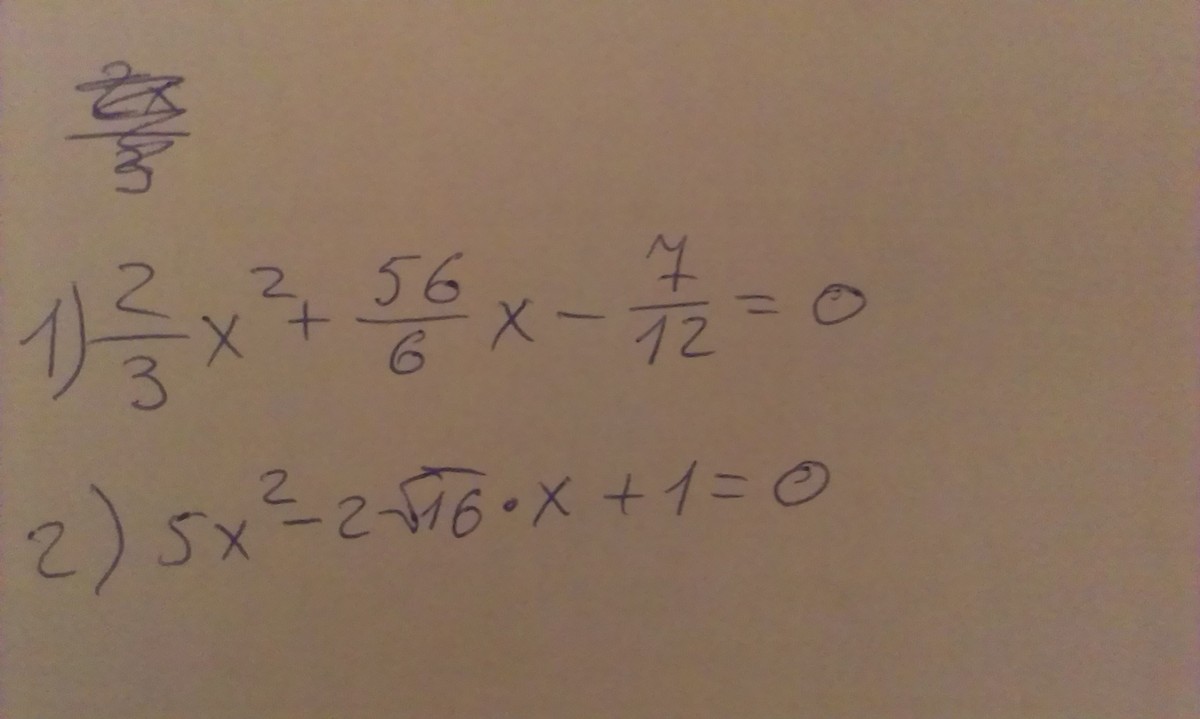 1) 2/3 x² + 56/6 x - 7/12 = 0
2) 5x² - 2√16 · x + 1 = 0